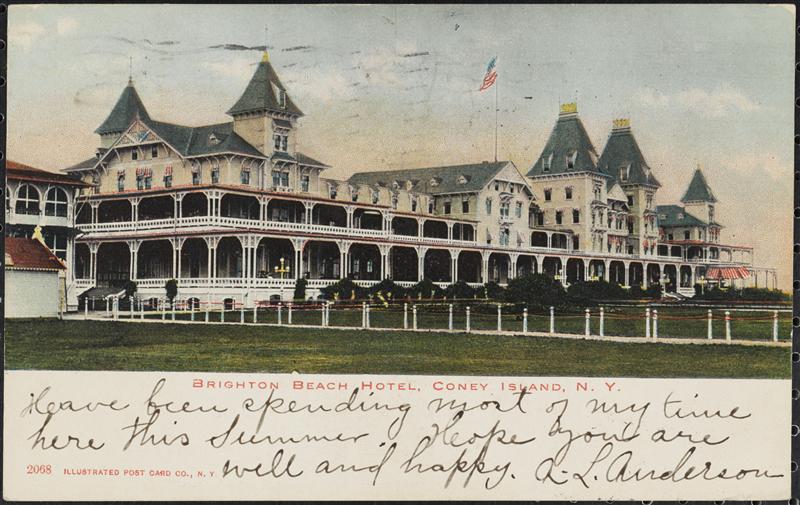 BRIGHTON BEACH HOTEL, CONEY ISLAND, N. Y.
Have been spending most of my time
here this Summer. Hope you are
well and happy. A. L. Anderson
2068 ILLUSTRATED POST CARD CO., N. Y.